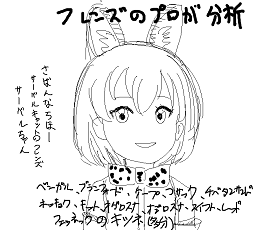 フレンズのプロが分析
さばんなちほー
サーバルキャットのフレンズ
サーバルちゃん
ベンガル、ブランフォード、ケープ、コサック、チベタンサンド
ホッキョク、キット、オグロスナ、オジロスナ、スイフト、レッド
フェネックのキツネ(多分)